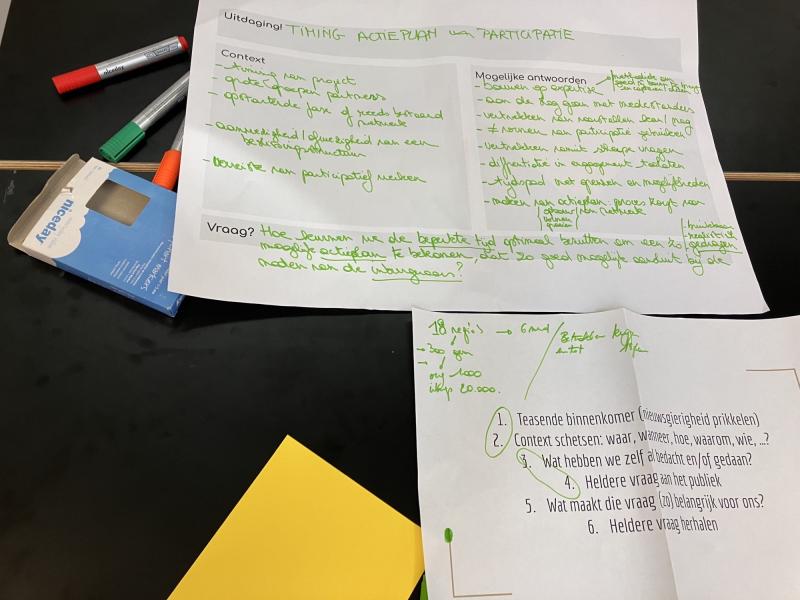 Uitdaging! TIMING ACTIEPLAN en PARTICIPATIE
Context
- timing van project
- grote groepen partners
- opstartende fase of reeds bestaand
netwerk
- aanwezigheid/afwezigheid van een
- van participatief werken
Mogelijke antwoorden
- bouwen op expertise
- aan de slag gaan met medestanders
- vertrekken van
- ≠ vormen van participatie
- vertrekken vanuit scherpe vragen
- differentiatie in engagement toelaten
- tijdspad met grenzen en mogelijkheden
- maken van actieplan: proces
van netwerk
Vraag? Hoe kunnen we de beperkte tijd optimaal benutten om een zo gedragen
mogelijk actieplan te bekomen, dat zo goed mogelijk aansluit bij de
noden van de inwoners?
- realistisch
niceday
niceday
markers
18 regio's → 6 mnd
→ 300 gem
1000
20.000.
1. Teasende binnenkomer (nieuwsgierigheid prikkelen)
2. Context schetsen: waar, wanneer, hoe, waarom, wie, ...?
3. Wat hebben we zelf al bedacht en/of gedaan?
4. Heldere vraag aan het publiek
5. Wat maakt die vraag (zo) belangrijk voor ons?
6. Heldere vraag herhalen